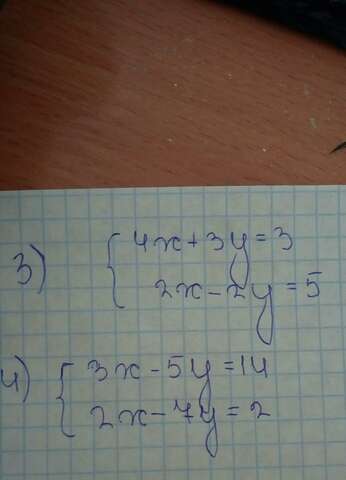 3) { 4x + 3y = 3
2x - 2y = 5
4) { 3x - 5y = 14
2x - 7y = 2